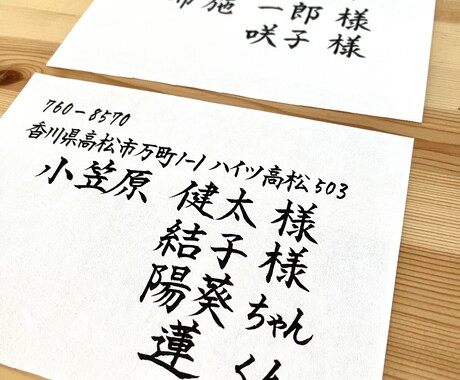 施 一郎 様
咲子 様
760-8570
香川県高松市万町1-1 ハイツ高松503
小笠原 健太 様
結子 様
陽葵 ちゃん
蓮 くん